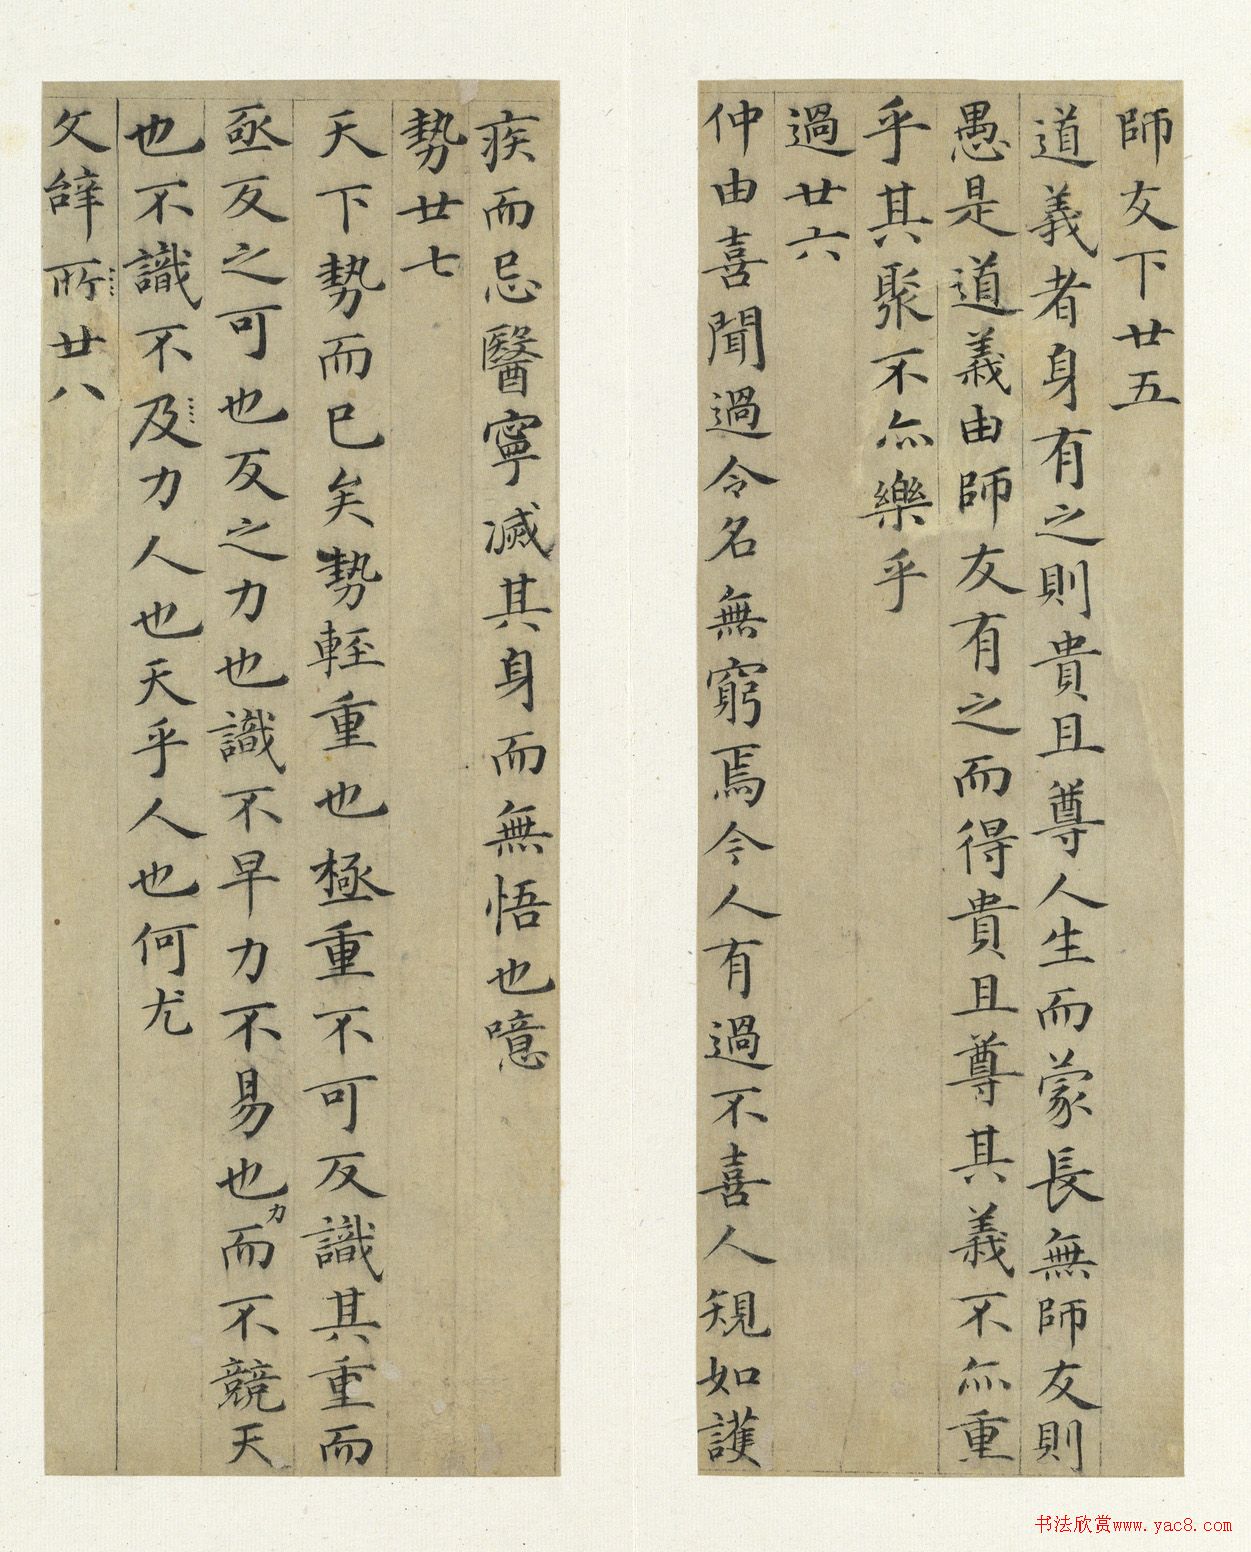 師友下廿五
道義者身有之則貴且尊人生而蒙長無師友則
愚是道義由師友有之而得貴且尊其義不亦重
乎其聚不亦樂乎
過廿六
仲由喜聞過令名無窮焉今人有過不喜人規如護
疾而忌醫寧滅其身而無悟也噫
勢廿七
天下勢而已矣勢輕重也極重不可反識其重而
亟反之可也反之力也識不早力不易也力而不競天
也不識不及力人也天乎人也何尤
文辝所廿八
书法欣赏www.yac8.com